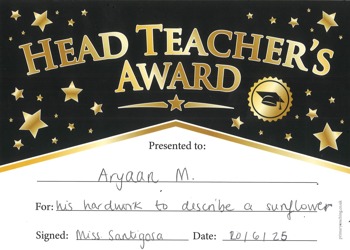 HEAD TEACHER'S
AWARD
Presented to:
Aryaan M.
For: his hardwork to describe a sunflower
Signed: Miss Santigosa Date: 20/6/25